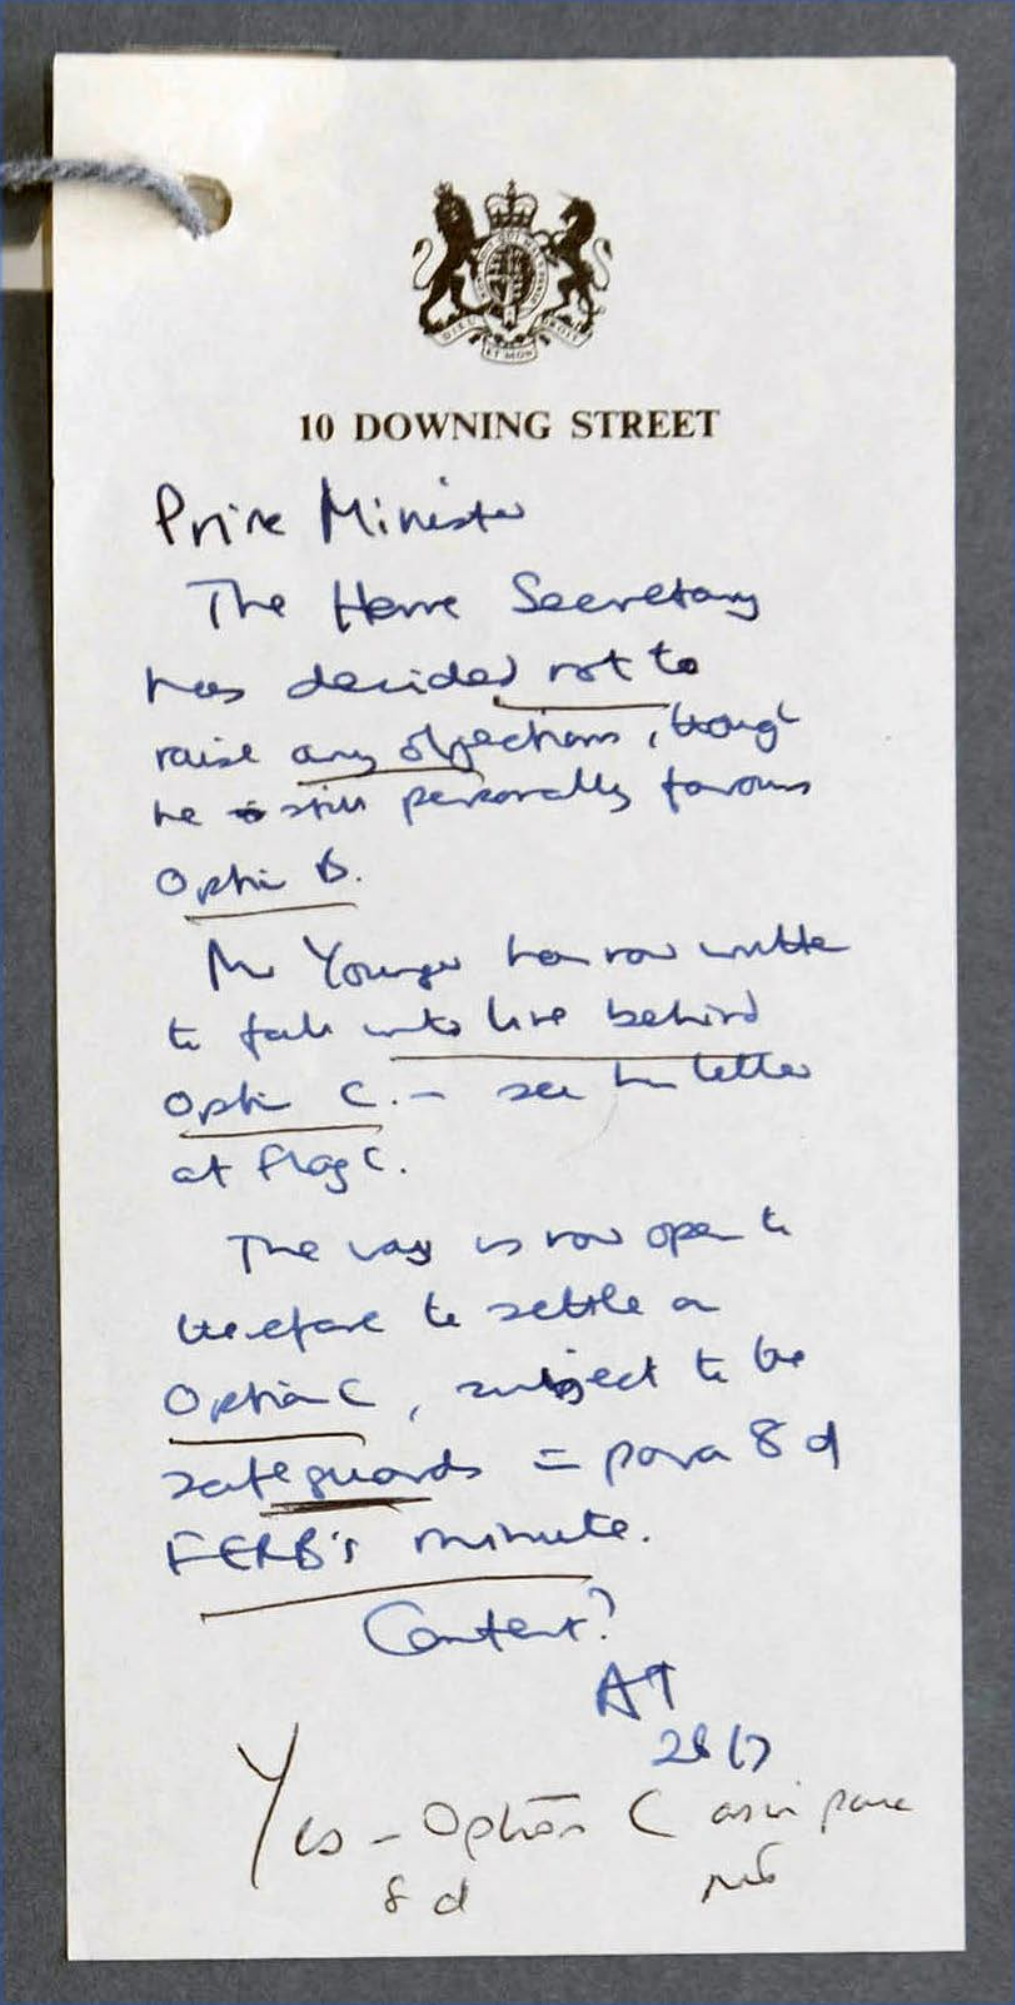 10 DOWNING STREET
Prime Minister
The Home Secretary
has decided not to
raise any objections, though
he still personally favours
Option B.
Mr Younger has now written
to fall into line behind
Option C. – see his letter
at Flag C.
The way is now open to
therefore to settle on
Option C, subject to the
safeguards = para 8 d
FERB's minute.
Content?
AT
28/7
Yes – Option C as in para
8 d